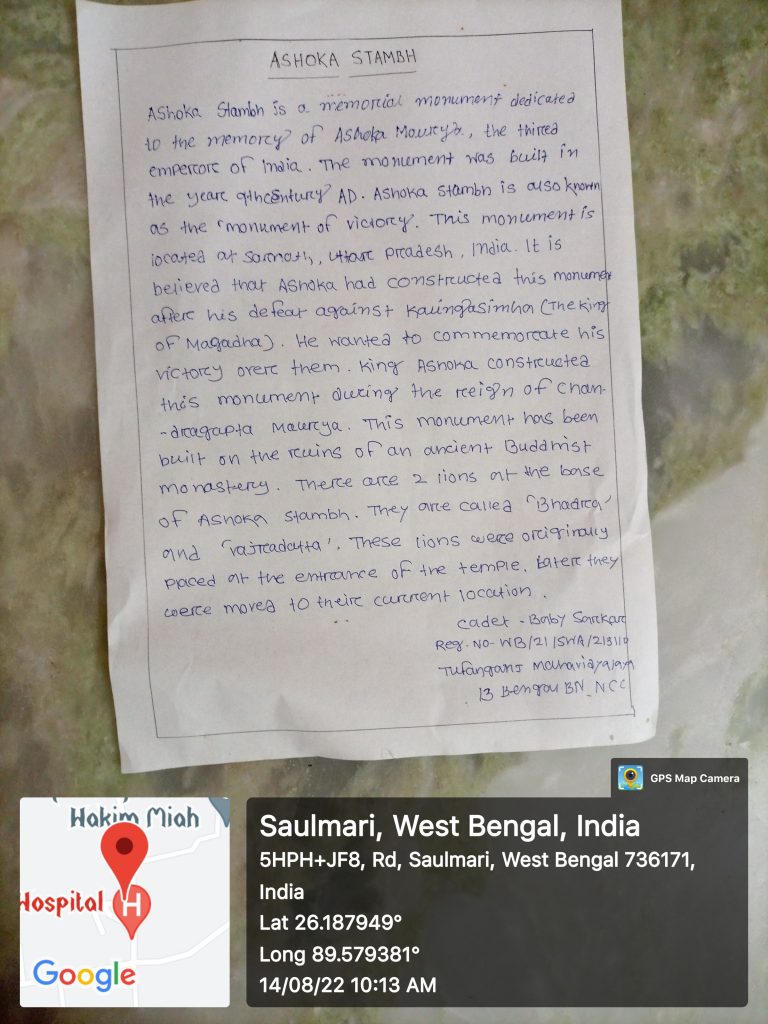 ASHOKA STAMBH
Ashoka Stambh is a memorial monument dedicated
to the memorcy of Ashoka Maurya, the thired
emperore of India. The monument was built in
the yeare 9thcentury AD. Ashoka stambh is also known
as the 'monument of victory. This monument is
located at Sarnath, uttare preadesh, India. It is
believed that Ashoka had constructed this monument
aftere his defeat against Kalingasimha (The king
of Magadha). He wanted to commemorcate his
victorcy overe them. King Ashoka constructed
this monument during the reeign of chan-
-dragapta Maurcya. This monument has been
built on the rcuins of an ancient Buddhist
monasterey. There arce 2 lions at the base
of Ashoka stambh. They are called 'Bhadrca'
and 'rajreadatta'. These lions werce orciginally
placed at the entrance of the temple. Latere they
werce moved to theirc current location.
cadet - Baby Sarkar
Reg. No- WB/21/SWA/
Tufanganj Mahavidyalaya
13 Bengal BN_NCC
GPS Map Camera
Hakim Miah
Hospital
H
Google
Saulmari, West Bengal, India
5HPH+JF8, Rd, Saulmari, West Bengal 736171,
India
Lat 26.187949°
Long 89.579381°
14/08/22 10:13 AM